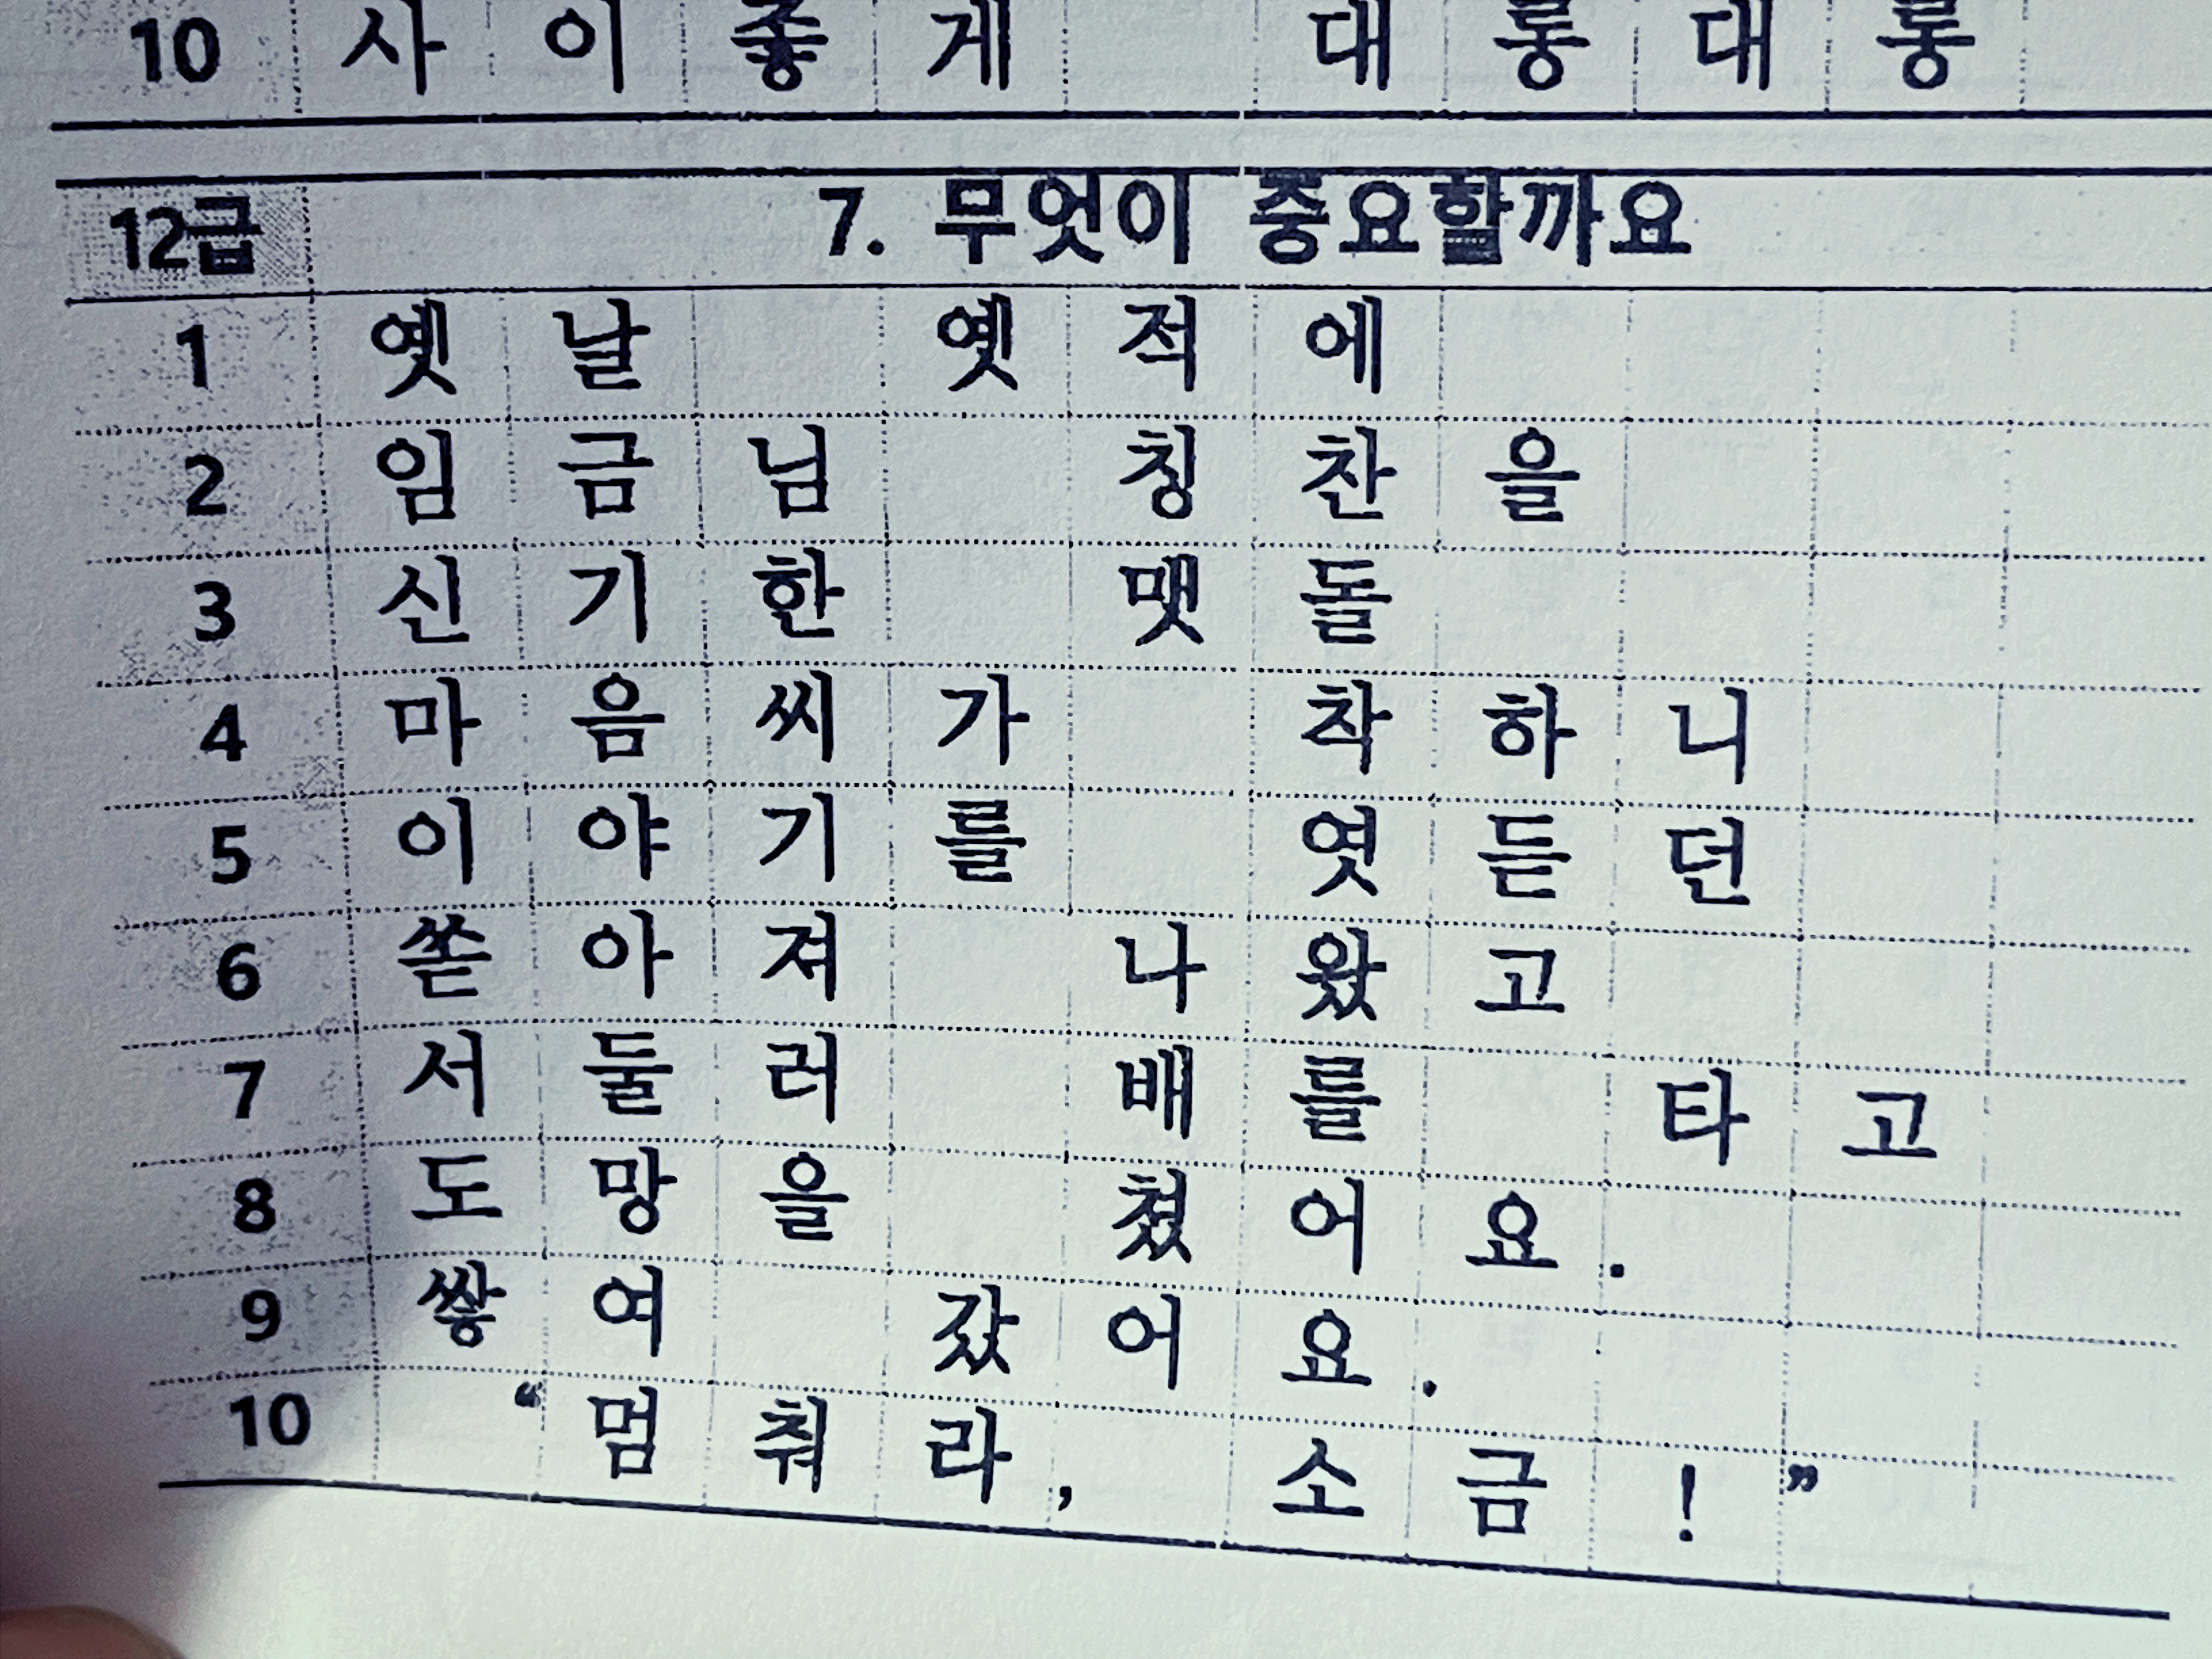 10 사이좋게 대롱대롱
12급 7. 무엇이 중요할까요
1 옛날 옛적에
2 임금님 칭찬을
3 신기한 맷돌
4 마음씨가 착하니
5 이야기를 엿듣던
6 쏟아져 나왔고
7 서둘러 배를 타고
8 도망을 쳤어요.
9 쌓여 갔어요.
10 “멈춰라, 소금!”